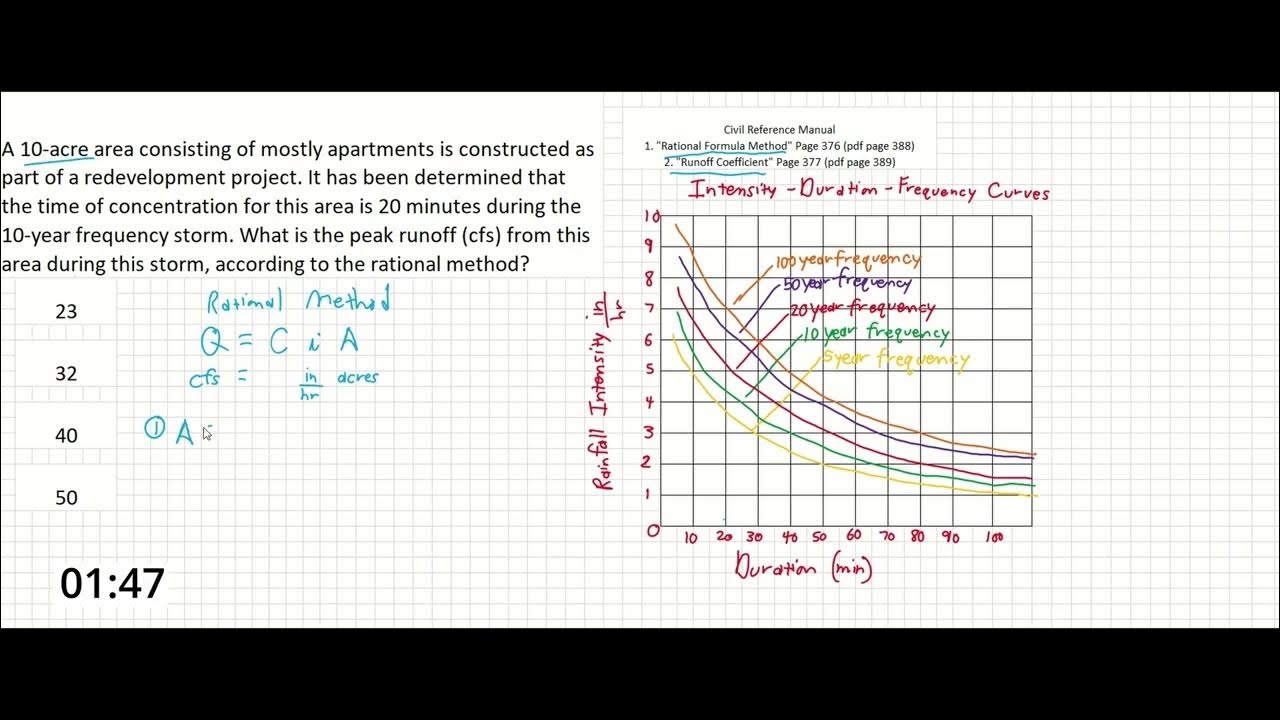 A 10-acre area consisting of mostly apartments is constructed as
part of a redevelopment project. It has been determined that
the time of concentration for this area is 20 minutes during the
10-year frequency storm. What is the peak runoff (cfs) from this
area during this storm, according to the rational method?
23
32
40
50
Rational Method
Q = C i A
cfs = in/hr acres
① A =
01:47
Civil Reference Manual
1. "Rational Formula Method" Page 376 (pdf page 388)
2. "Runoff Coefficient" Page 377 (pdf page 389)
Intensity - Duration - Frequency Curves
Rainfall Intensity in/hr
10
9
8
7
6
5
4
3
2
1
0
100 year frequency
50 year frequency
20 year frequency
10 year frequency
5 year frequency
10 20 30 40 50 60 70 80 90 100
Duration (min)